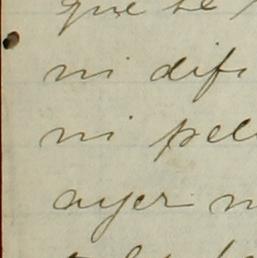 que se
ni difi
ni pel
ayer n